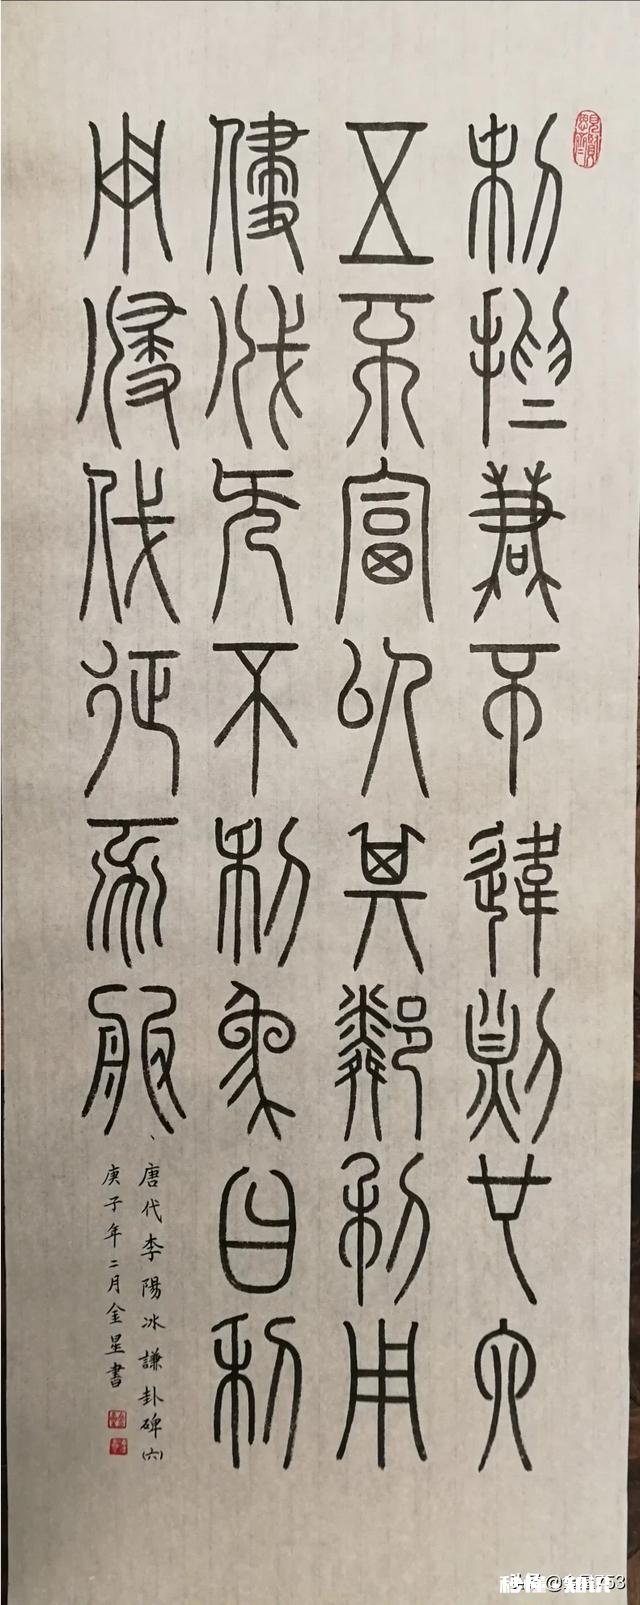 利撝謙不違則也六
五不富以其鄰利用
侵伐无不利象曰利
用侵伐征不服
唐代李陽冰謙卦碑(六)
庚子年二月金星書